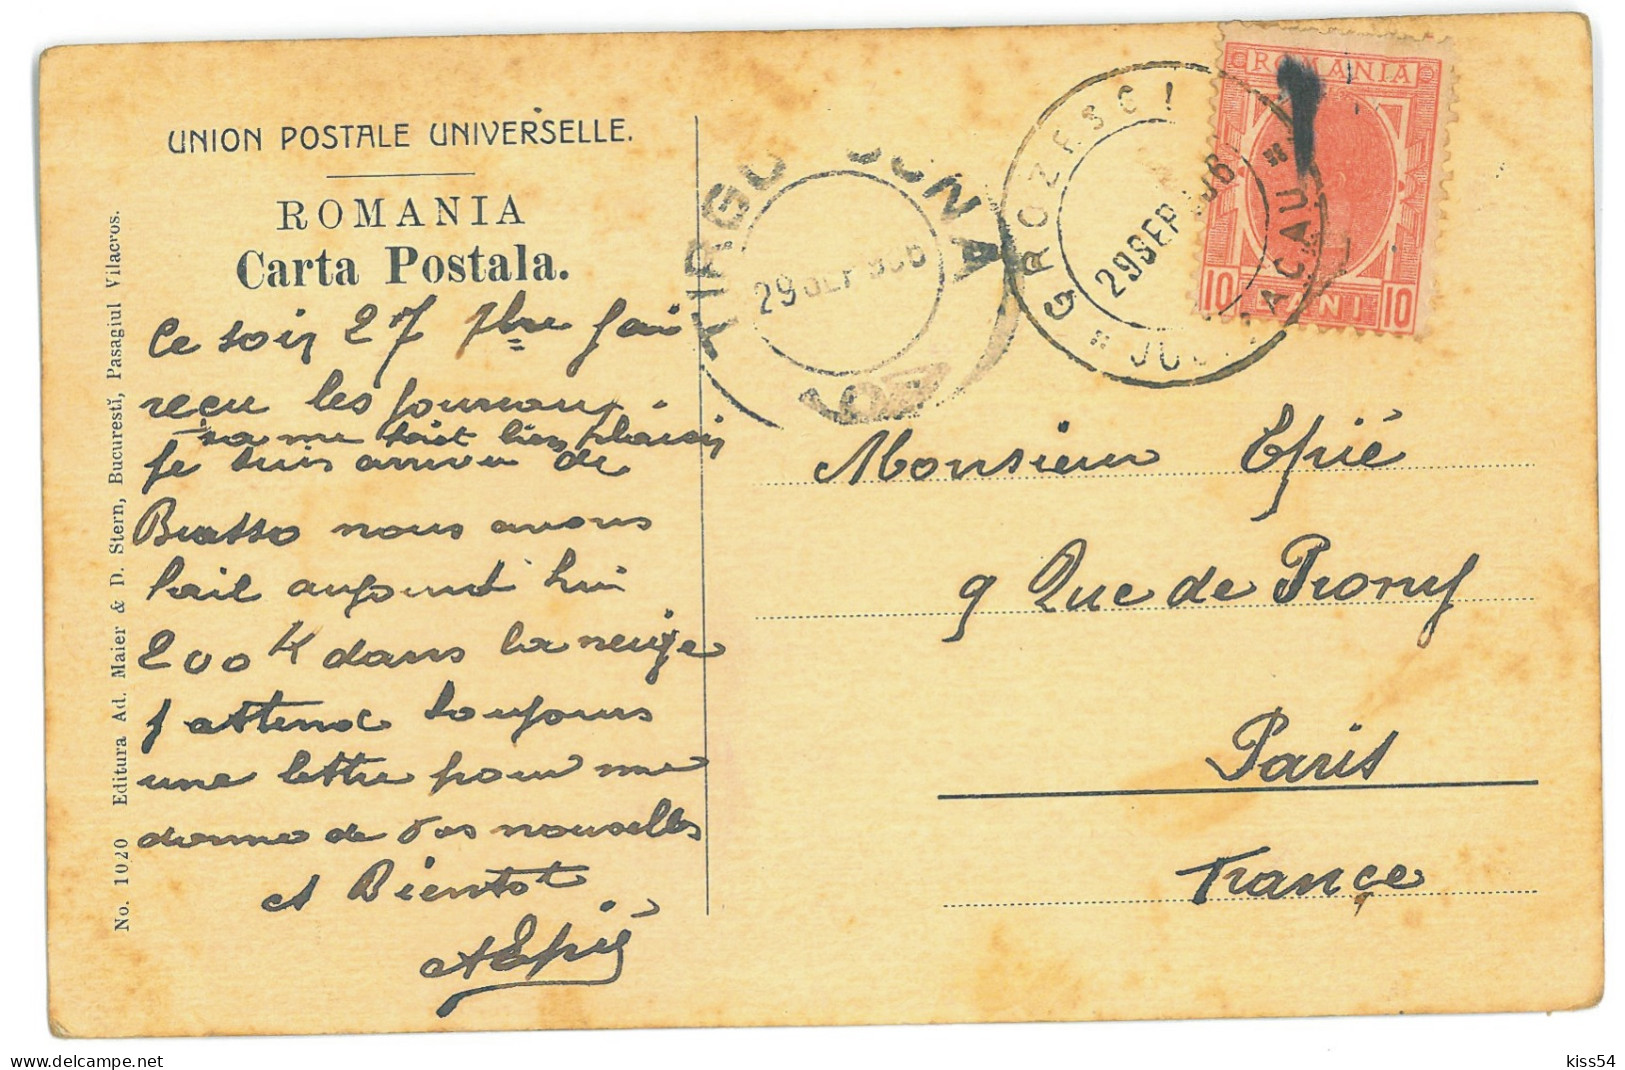 UNION POSTALE UNIVERSELLE.
ROMANIA
Carta Postala.
No. 1020 Editura Ad. Maier & D. Stern, Bucuresti, Pasagiul Vilacros.
Ce soir 27 7bre j'ai
reçu les journaux
sa me fait bien plaisir
je suis arrivée de
Brasso nous avons
fait aujourd hui
200 K dans la neige
j attend toujours
une lettre pour me
donne de vos nouvelles
A Bientot
A Epié
TIRGU OCNA
29 SEP 906
107
GROZESCI
29 SEP 906
JUD. BACAU
ROMANIA
10 BANI 10
Monsieur Epié
9 Rue de Prony
Paris
France
kiss54
delcampe.net